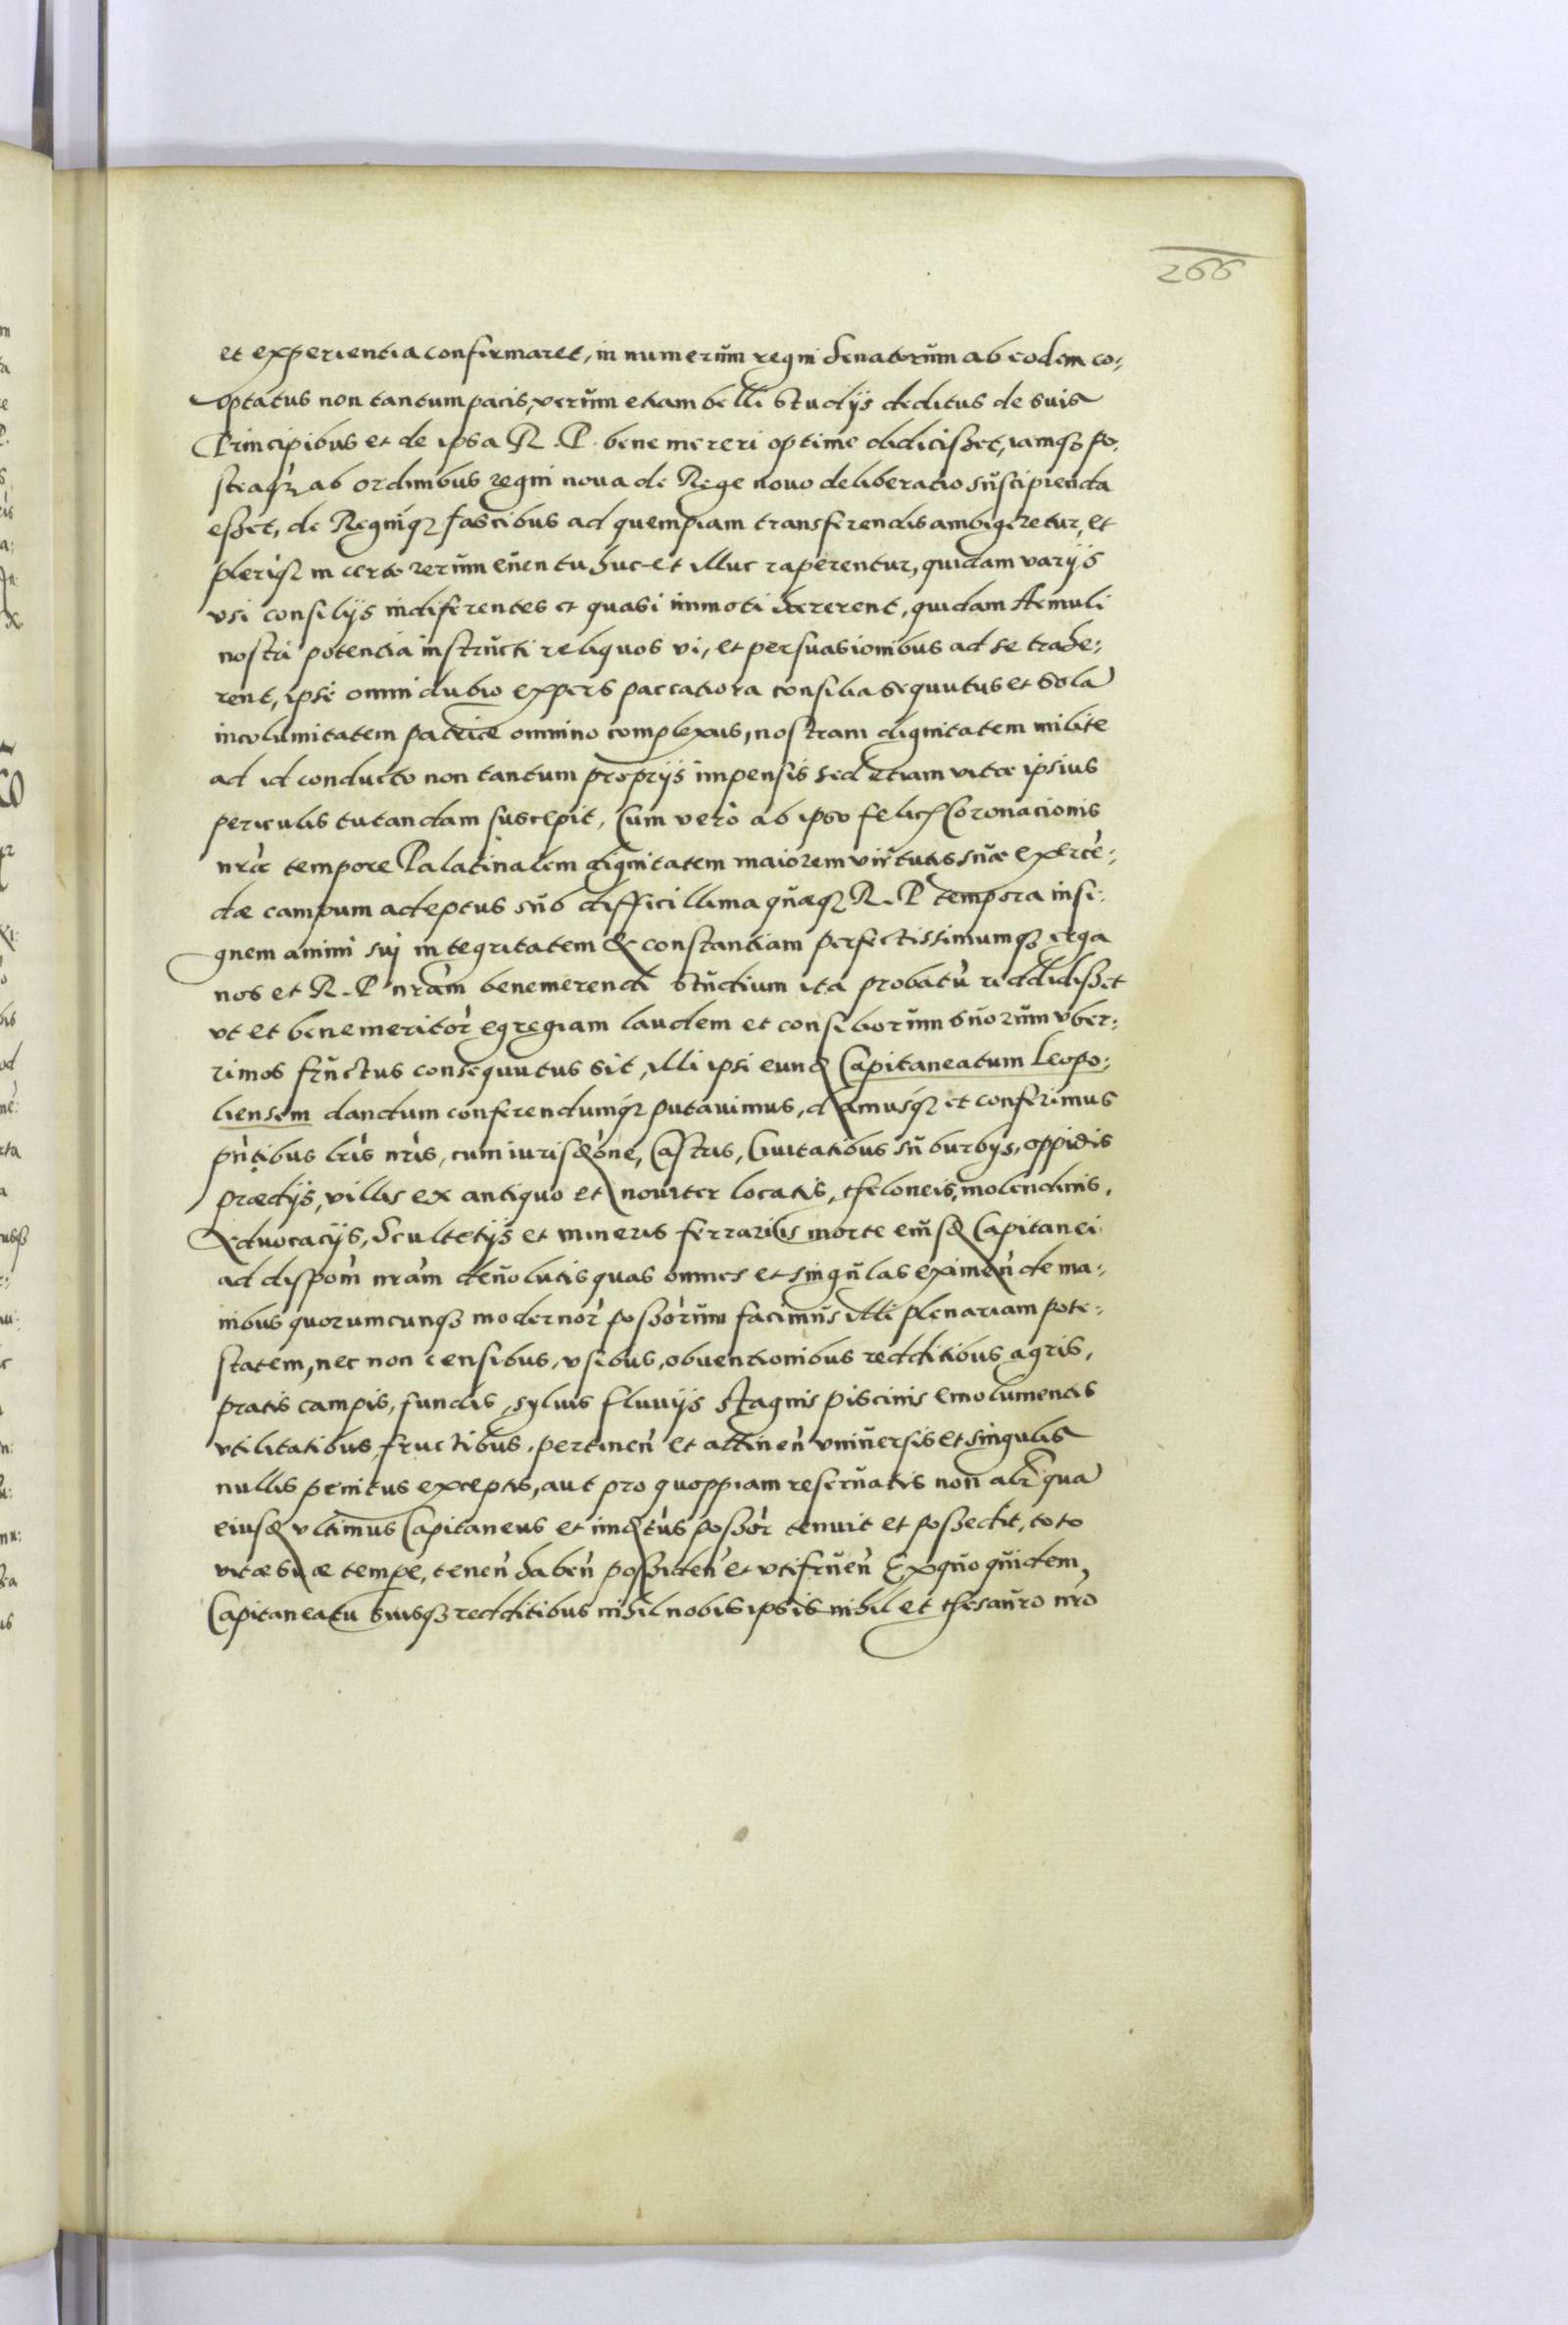 266
et experientia confirmaret, in numerum regni Senatorum ab eodem co:
optatus non tantum pacis, verum etiam belli studijs deditus de suis
Principibus et de ipsa R. P. bene mereri optime didicisset, iamq3 po:
steaq3 ab ordinibus regni noua de Rege nouo deliberatio suscipienda
esset, de Regniq3 fascibus ad quempiam transferendis ambigeretur, et
pleriq3 incerto rerum euentu huc et illuc raperentur, quidam varijs
vsi consilijs indiferentes et quasi immoti haererent, quidam Aemuli
nostri potentia instructi reliquos vi, et persuasionibus ad se trahe:
rent, ipse omni dubio expers paccatiora consilia sequutus et solā
incolumitatem patriae omnino complexus, nostram dignitatem milite
ad id conducto non tantum proprijs impensis sed etiam vitae ipsius
periculis tutandam suscepit, Cum verò ab ipso felicis Coronacionis
nrae tempore Palatinalem dignitatem maiorem virtutis suae exercē:
dae campum adeptus sub difficillima quaeq3 R. P. tempora insi:
gnem animi sui integritatem & constantiam perfectissimumq3 erga
nos et R. P. nram benemerendi studium ita probatū reddidisset
vt et benemeritor egregiam laudem et consiliorum suorum vber:
rimos fructus consequutus sit, illi ipsi eund Capitaneatum Leopo:
liensem dandum conferendumq3 putauimus, damusq3 et conferimus
pntibus lris nris, cum iurisdone, Castris, Ciuitatibus suburbijs, oppidis
praedijs, villis ex antiquo et nouiter locatis, theloneis, molendinis,
Aduocacijs, Scultetijs et mineris ferrarijs morte eiusd Capitanei
ad dispom nram deuolutis quas omnes et singulas eximen de ma:
nibus quorumcunq3 modernor possorum facimus illi plenariam pote:
statem, nec non censibus, vsibus, obuentionibus redditibus agris,
pratis campis, fundis, syluis fluuijs stagnis piscinis emolumentis
vtilitatibus, fructibus, pertinen et attinen vniuersis et singulis
nullis penitus exceptis, aut pro quoppiam reseruatis non alr quā
eiusd vltimus Capitaneus et imdtus possor tenuit et possedit, toto
vitae suae tempe, tenen haben possiden et vtifruen Ex quo quidem
Capitaneatu suisq3 redditibus nihil nobis ipsis nihil et thesauro nro